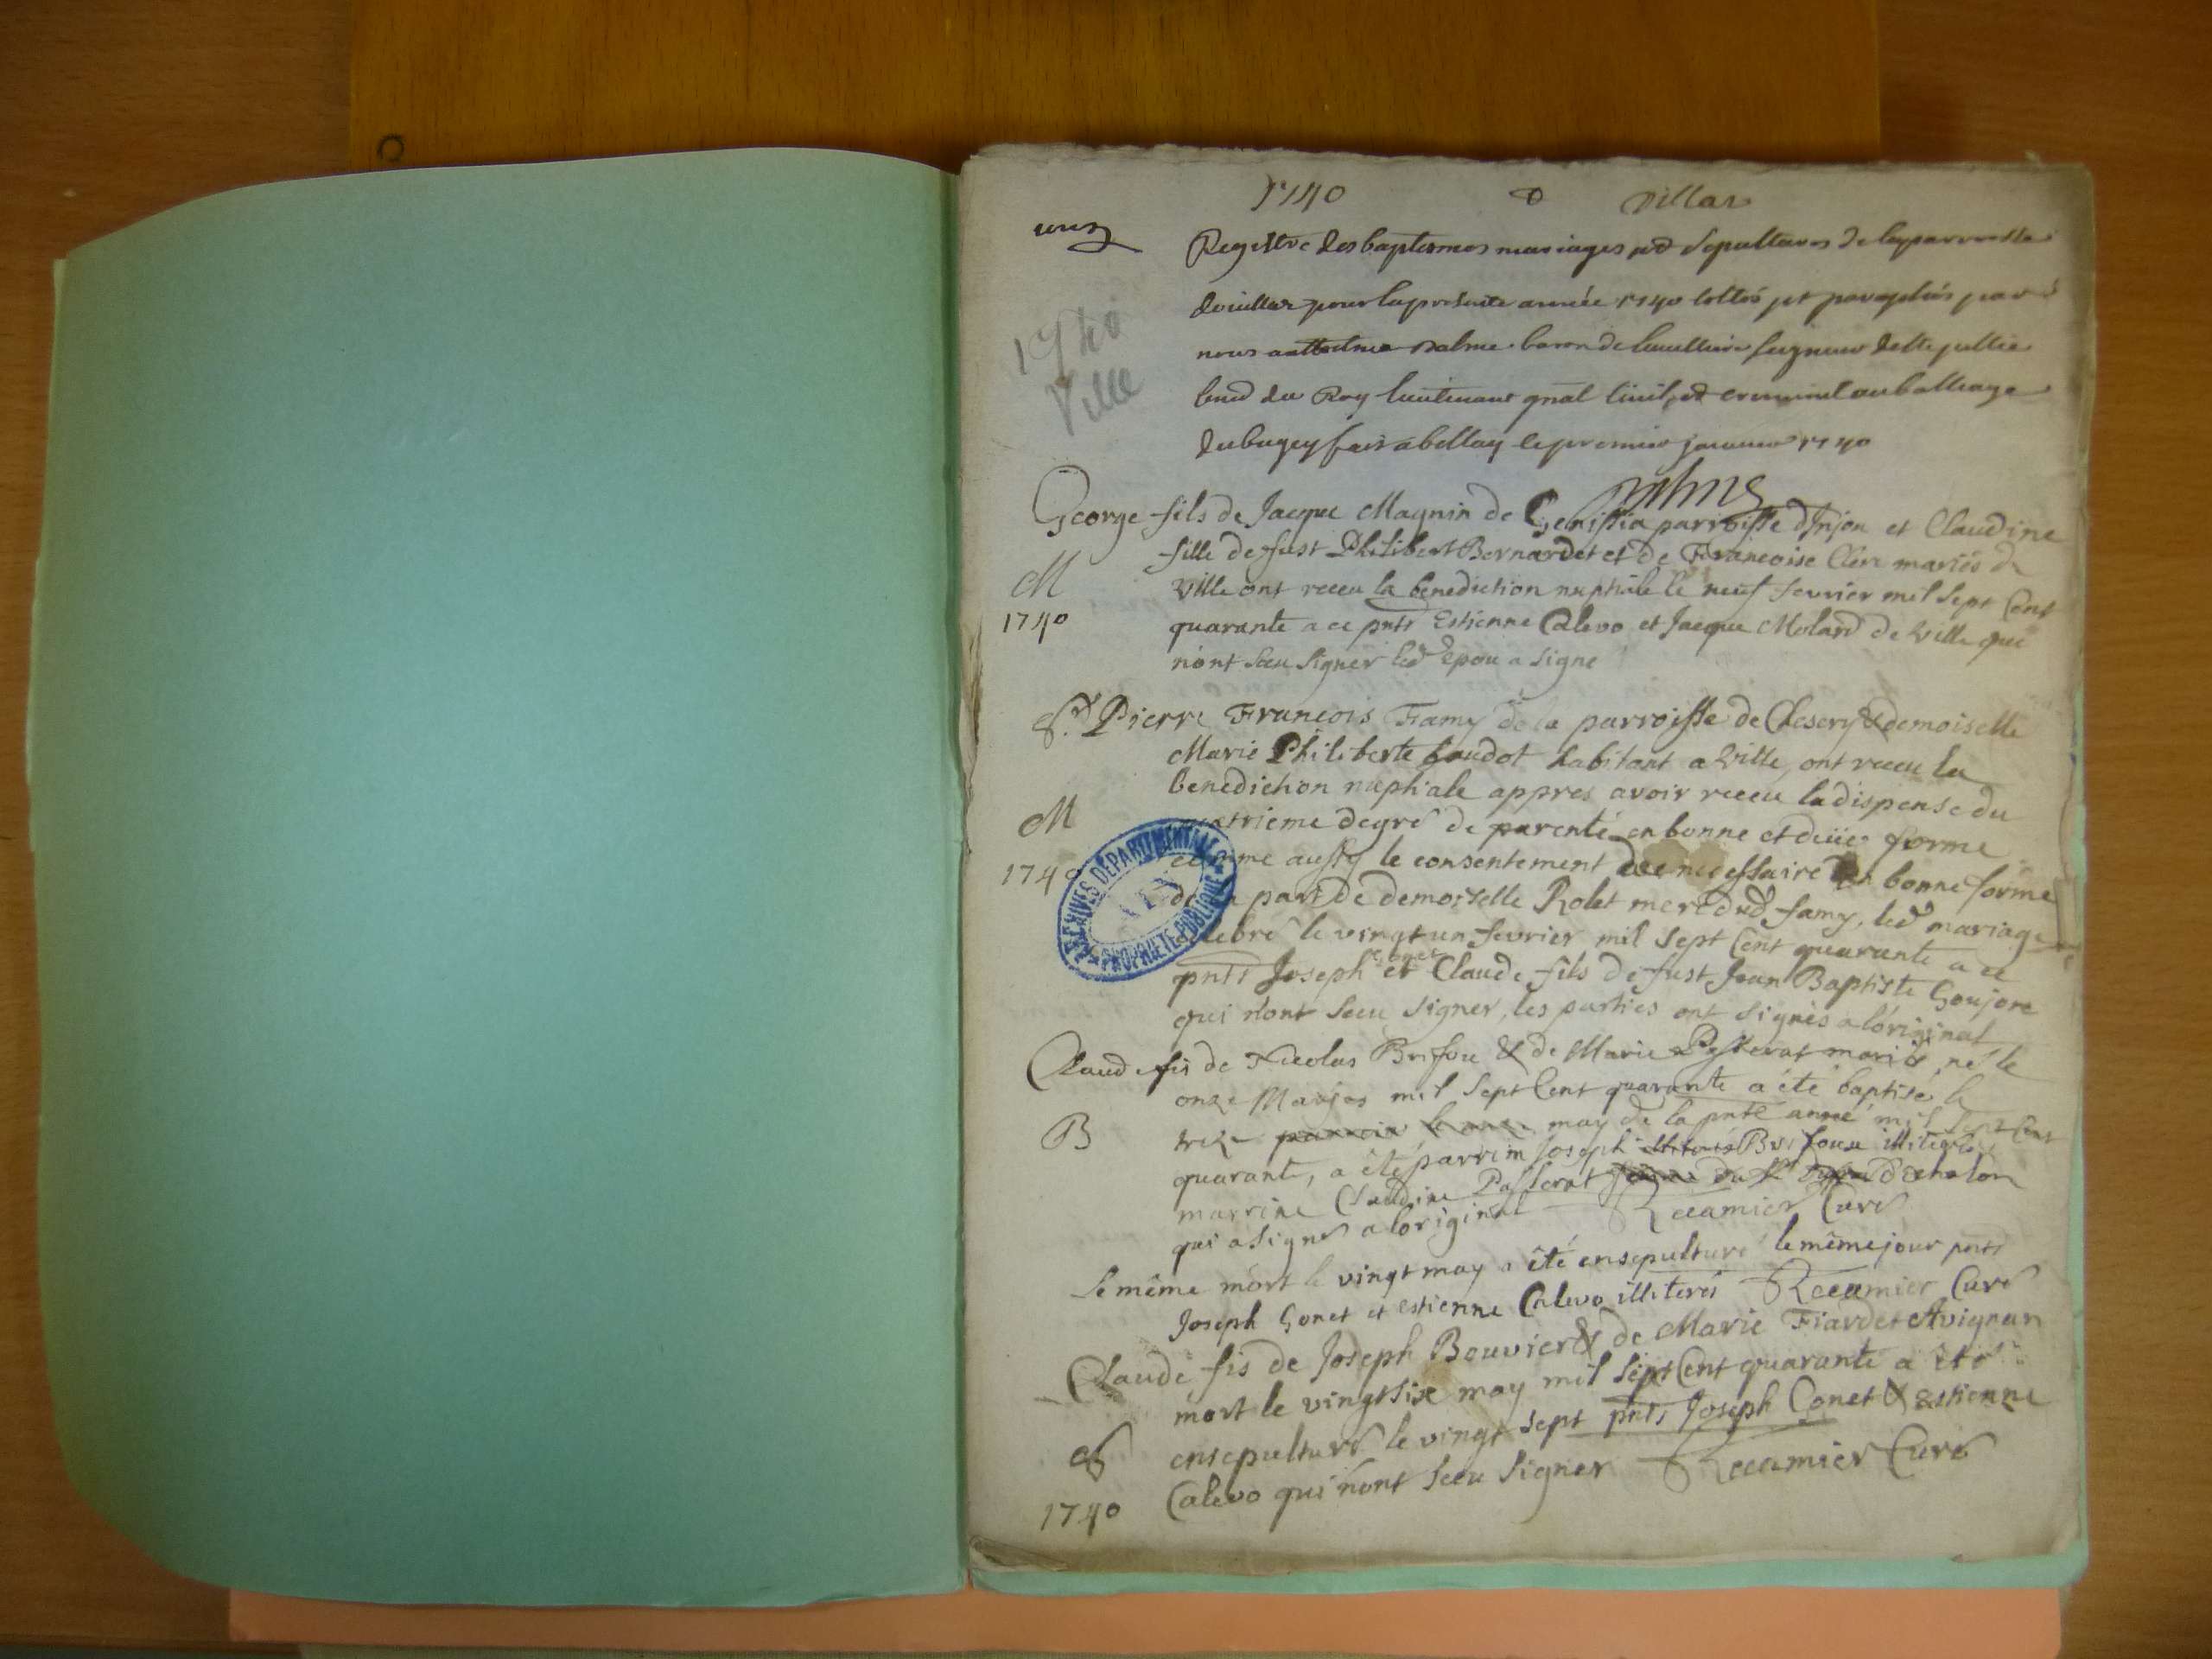 1740 & villar
une
Registre des baptesmes mariages et sepultures de la parroisse
de villar pour la presente année 1740 cottés et paraphés par
nous anthelme balme baron de seigneur de ste jullie
du Roy lieutenant gnal civil et criminel au balliage
du bugey fait a bellay le premier janvier 1740
balme
1740
Ville
George fils de Jacque Magnin de Genissia parroisse d'Injou et Claudine
fille de fust Philibert Bernardet et de Francoise Clerc mariés de
M
Ville ont receu la benediction nuptiale le neuf fevrier mil sept Cent
1740
quarante a ce pnts Estienne Calevo et Jacque Molard de Ville qui
n'ont sceu signer led epou a signe
Sr. Pierre Francois Famy de la parroisse de Chesery & demoiselle
Marie Philiberte baudot habitant a Ville, ont receu la
benediction nuptiale appres avoir receu la dispense du
M
quatrieme degré de parenté en bonne et deüe forme
1740
comme aussy le consentement necessaire en bonne forme
de la part de demoiselle Rolet mere dud famy, led mariage
celebré le vingt un fevrier mil sept Cent quarante a ce
pnts Joseph Gonet et Claude fils de fust Jean Baptiste Goujon
qui n'ont sceu signer, les parties ont signés a l'original
Claude fis de Nicolas Brifou & de Marie Passerat mariés né le
onze mil sept Cent quarante a été baptisé le
B
treze may de la pnte anné mil sept Cent
quarante, a été parrim Joseph Brifoux illiteré
marrine Claudine Passerat
qui a signé a loriginal Recamier Curé
le même mort le vingt may a été ensepulturé le même jour pnts
Joseph Gonet et estienne Calevo illiterés Recamier Curé
Claude fis de Joseph Bouvier & de Marie Fiardet Avignun
mort le vingt sixe may mil sept Cent quarante a été
S
ensepulturé le vingt sept pnts Joseph Gonet & Estienne
1740
Calevo qui n'ont sceu signer Recamier Curé
ARCHIVES DÉPARTEMENTALES
AIN
PROPRIÉTÉ PUBLIQUE